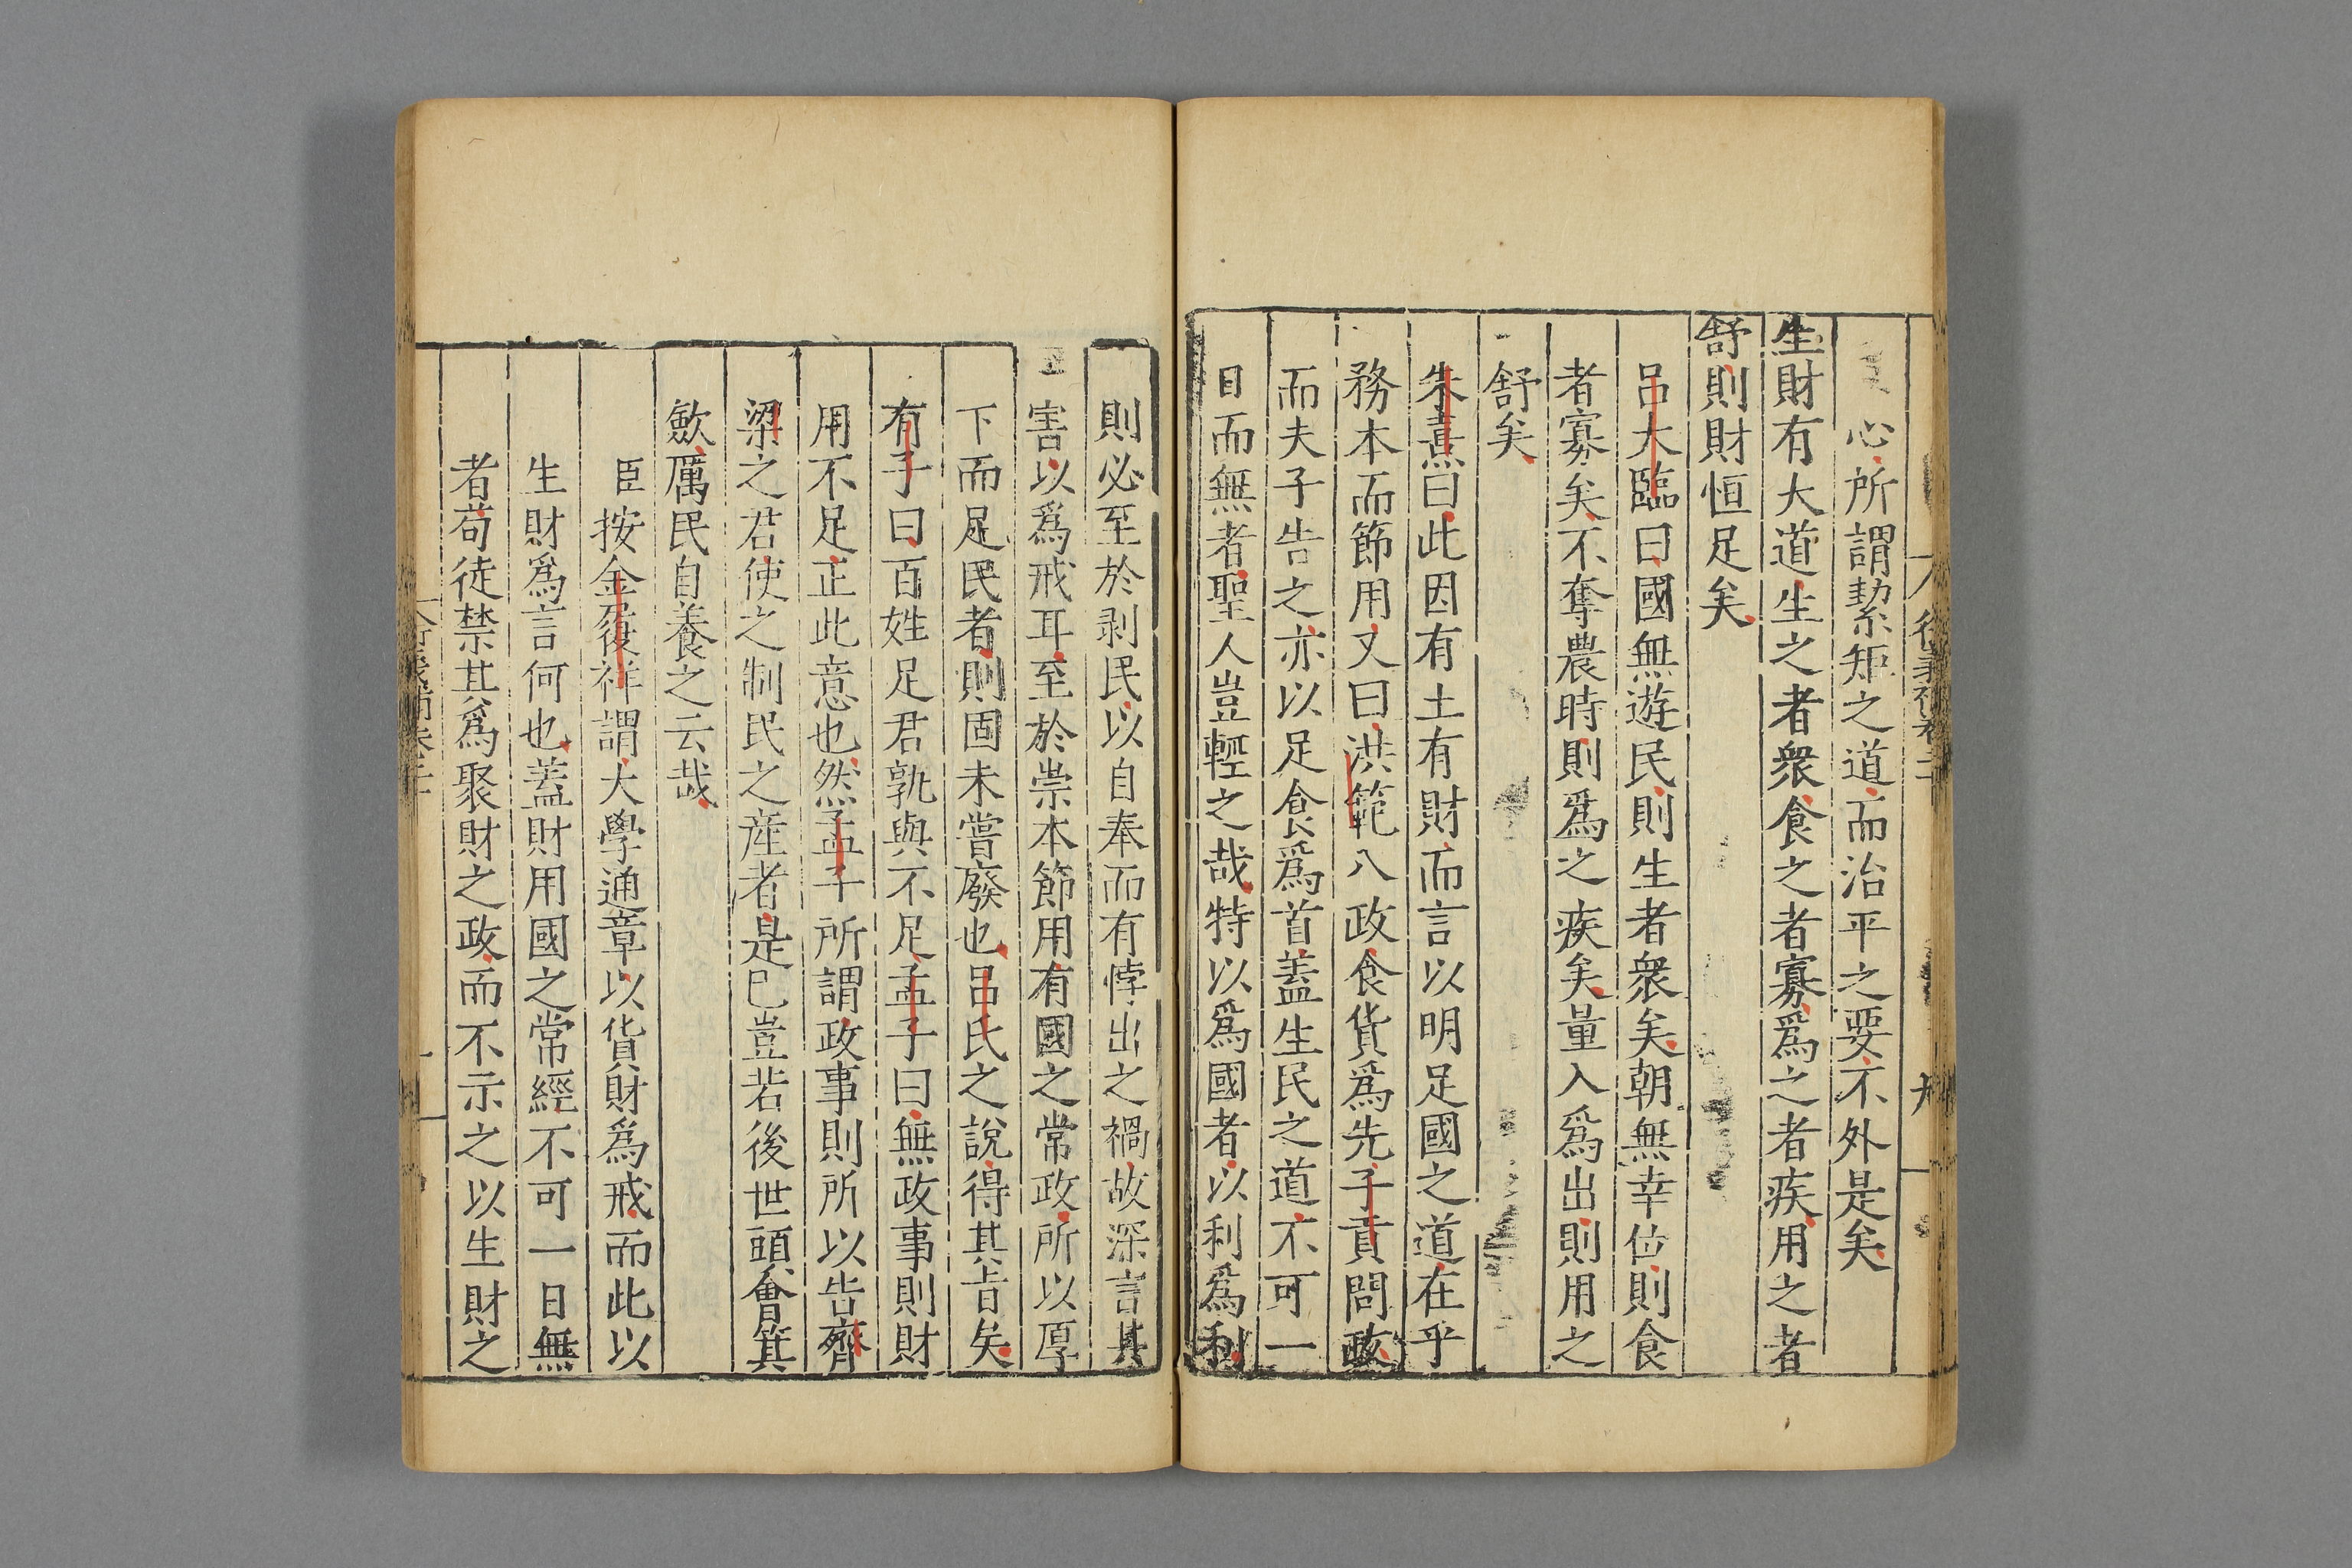 心所謂絜矩之道而治平之要不外是矣
生財有大道生之者衆食之者寡爲之者疾用之者
舒則財恒足矣
呂大臨曰國無遊民則生者衆矣朝無幸位則食
者寡矣不奪農時則爲之疾矣量入爲出則用之
舒矣
朱熹曰此因有土有財而言以明足國之道在乎
務本而節用又曰洪範八政食貨爲先子貢問政
而夫子告之亦以足食爲首蓋生民之道不可一
日而無者聖人豈輕之哉特以爲國者以利爲利
則必至於剥民以自奉而有悖出之禍故深言其
害以爲戒耳至於崇本節用有國之常政所以厚
下而足民者則固未嘗廢也呂氏之說得其旨矣
有子曰百姓足君孰與不足孟子曰無政事則財
用不足正此意也然孟子所謂政事則所以告齊
梁之君使之制民之産者是巳豈若後世頭會箕
歛厲民自養之云哉
臣按金履祥謂大學通章以貨財爲戒而此以
生財爲言何也蓋財用國之常經不可一日無
者苟徒禁其爲聚財之政而不示之以生財之